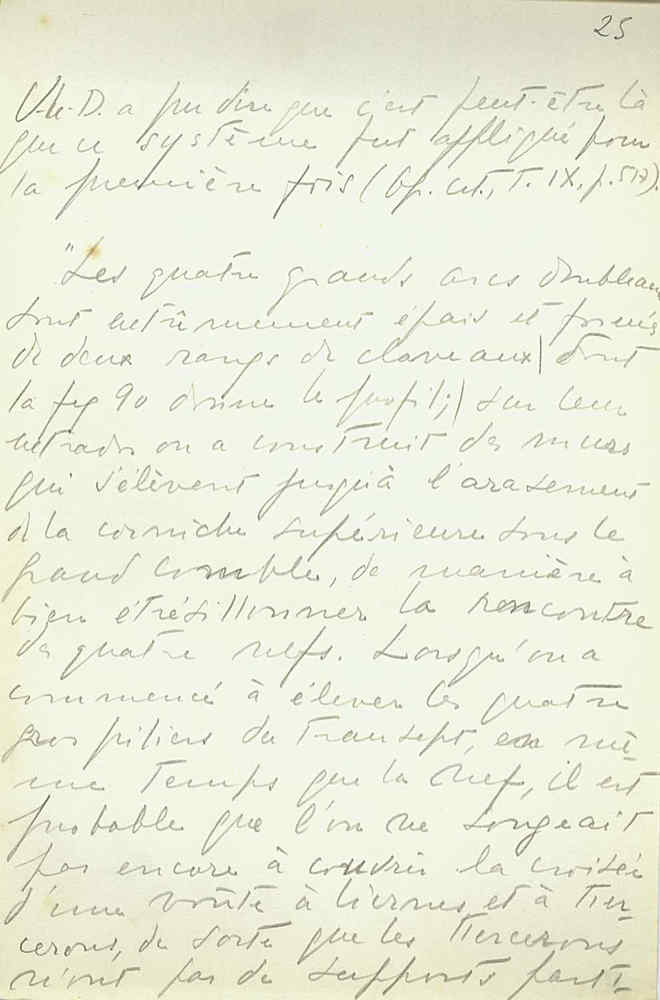 25
V.-le-D. a pu dire que c'est peut-être là
que ce système fut appliqué pour
la première fois (Op. cit., T. IX, p. 517).
"Les quatre grands arcs doubleaux
sont extrêmement épais et formés
de deux rangs de claveaux | dont
la fig 90 donne le profil; | sur leur
extrados on a construit des murs
qui s'élèvent jusqu'à l'arasement
de la corniche supérieure sous le
grand comble, de manière à
bien étrésillonner la rencontre
des quatre nefs. Lorsqu'on a
commencé à élever les quatre
gros piliers du transept, en mê-
me temps que la nef, il est
probable que l'on ne songeait
pas encore à couvrir la croisée
d'une voûte à liernes et à tier-
cerons, de sorte que les tiercerons
n'ont pas de supports parti-